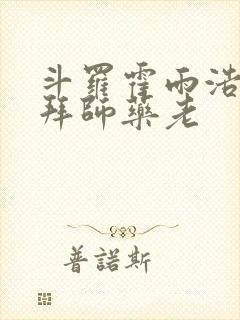 斗羅霍雨浩
拜師藥老
普諾斯